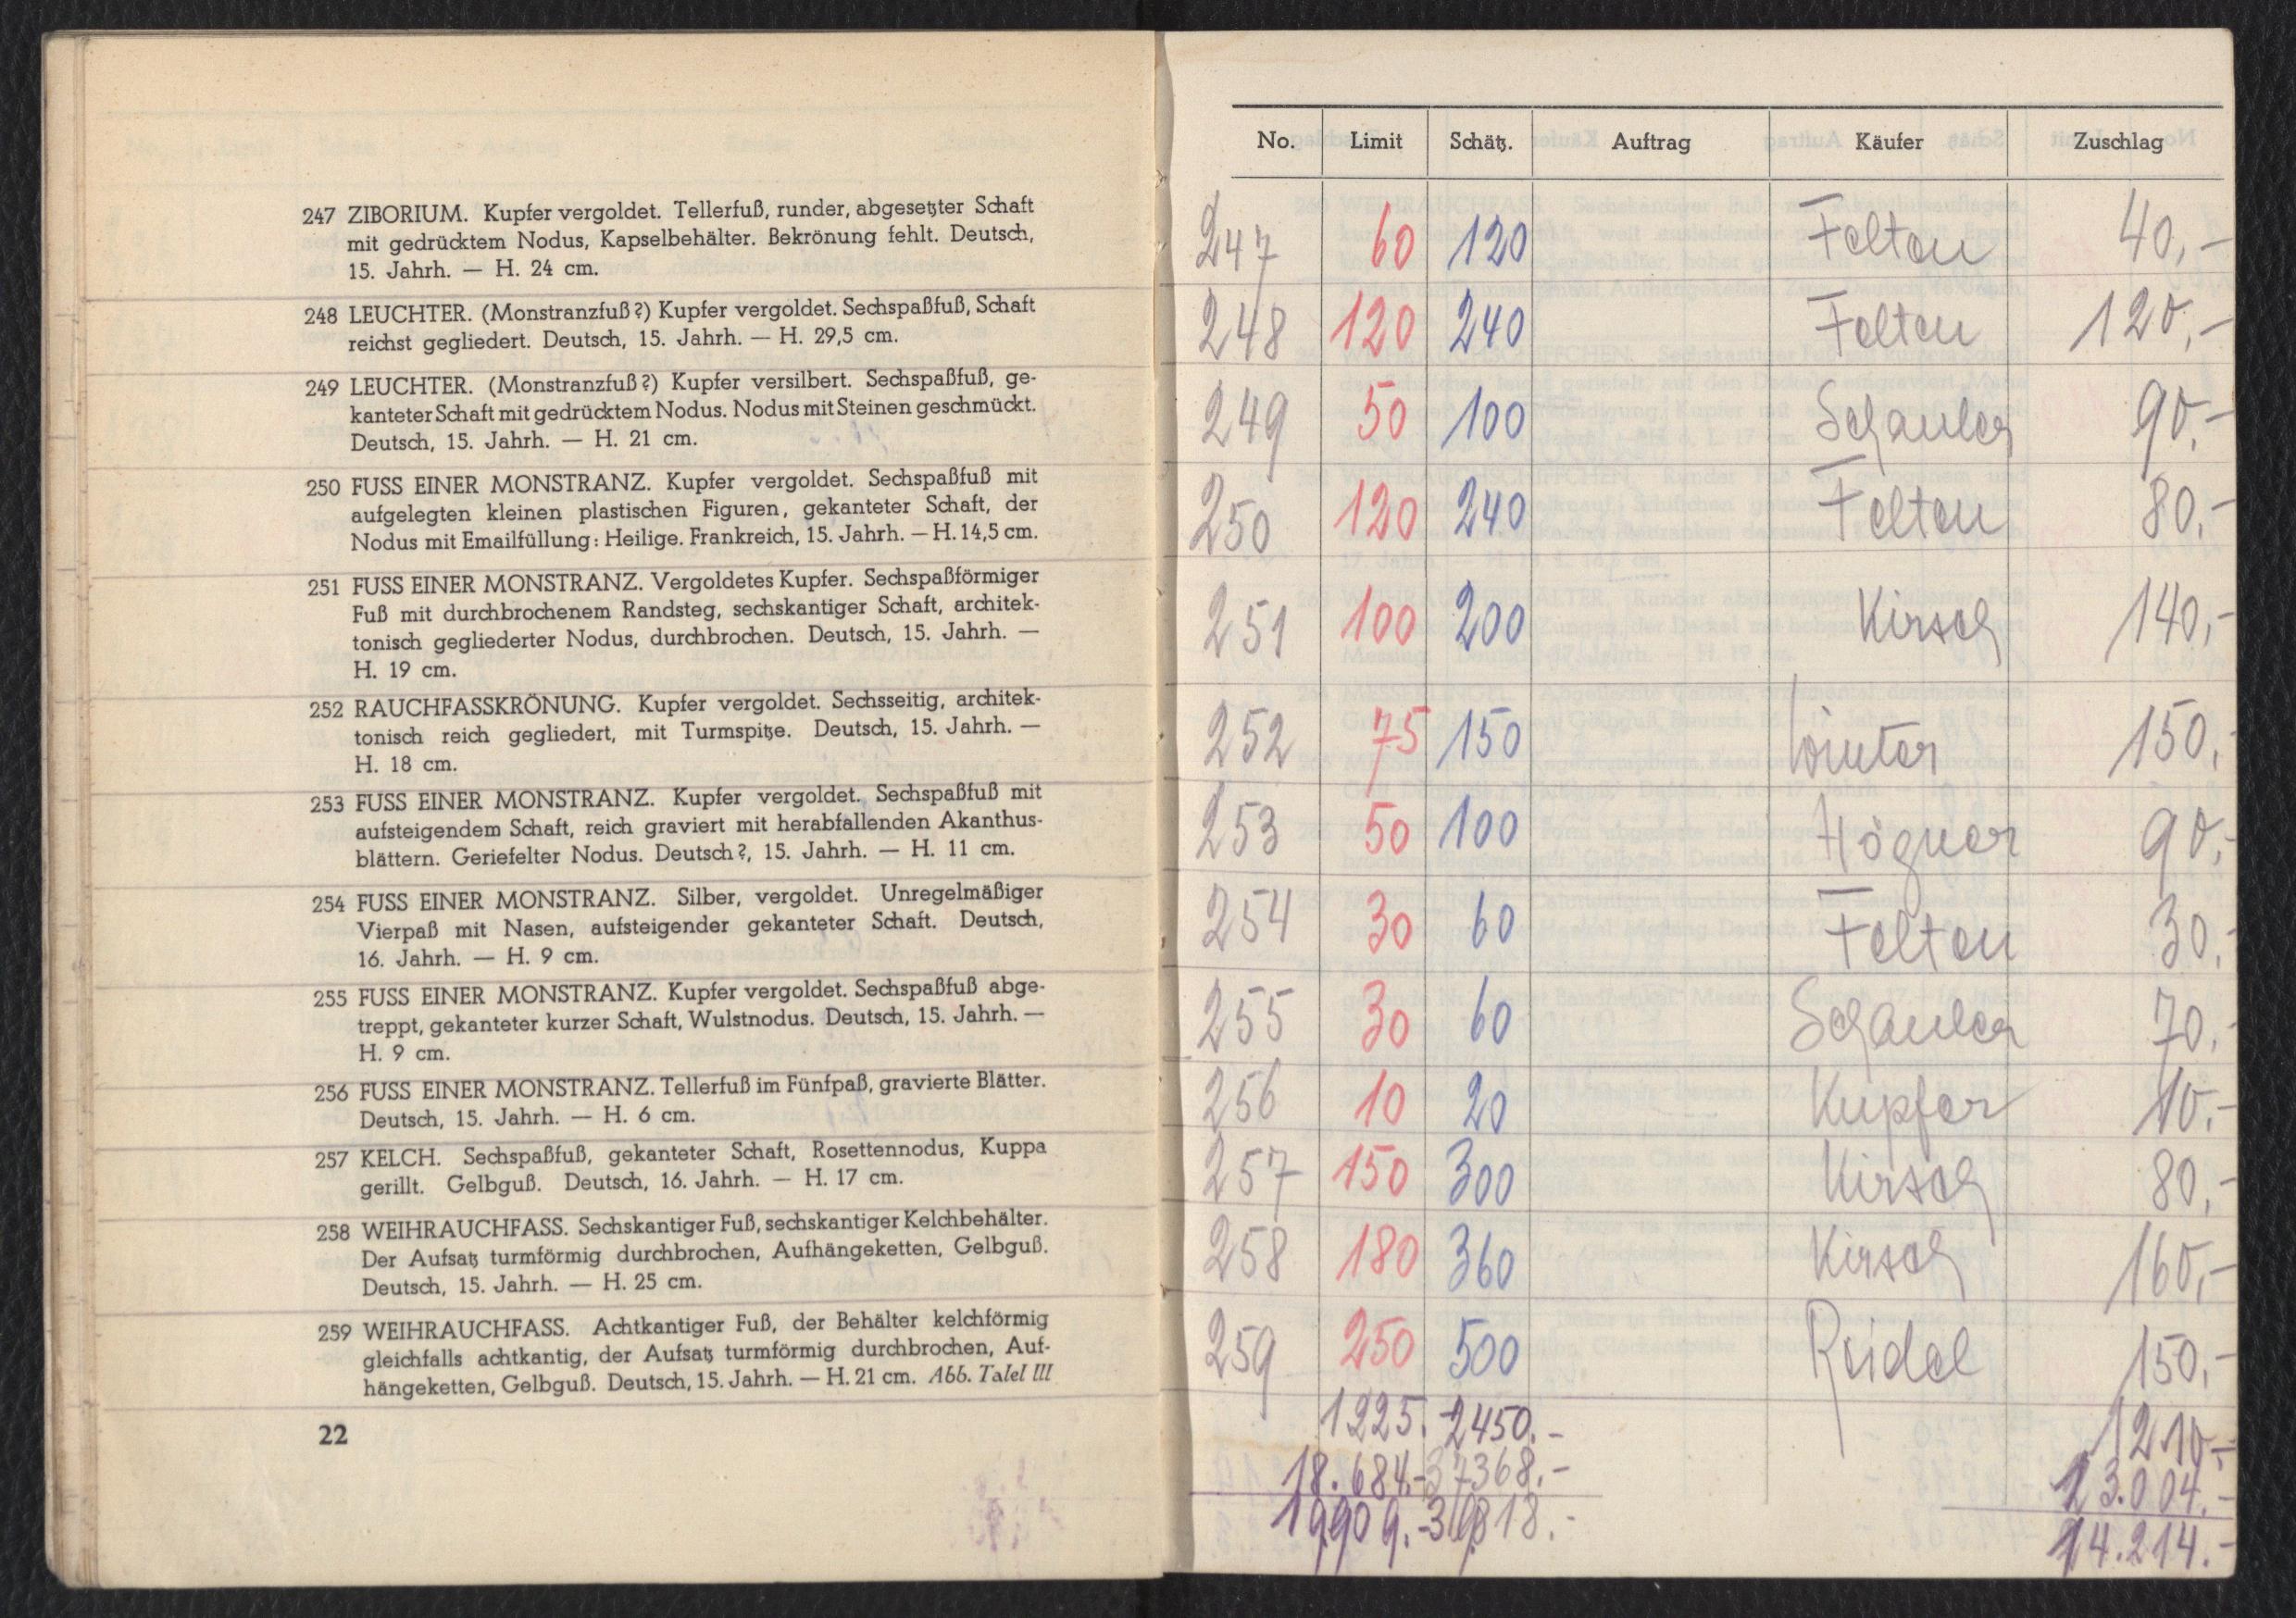 247 ZIBORIUM. Kupfer vergoldet. Tellerfuß, runder, abgesetzter Schaft
mit gedrücktem Nodus, Kapselbehälter. Bekrönung fehlt. Deutsch,
15. Jahrh. — H. 24 cm.
248 LEUCHTER. (Monstranzfuß?) Kupfer vergoldet. Sechspaßfuß, Schaft
reichst gegliedert. Deutsch, 15. Jahrh. — H. 29,5 cm.
249 LEUCHTER. (Monstranzfuß?) Kupfer versilbert. Sechspaßfuß, ge-
kanteter Schaft mit gedrücktem Nodus. Nodus mit Steinen geschmückt.
Deutsch, 15. Jahrh. — H. 21 cm.
250 FUSS EINER MONSTRANZ. Kupfer vergoldet. Sechspaßfuß mit
aufgelegten kleinen plastischen Figuren, gekanteter Schaft, der
Nodus mit Emailfüllung: Heilige. Frankreich, 15. Jahrh. — H. 14,5 cm.
251 FUSS EINER MONSTRANZ. Vergoldetes Kupfer. Sechspaßförmiger
Fuß mit durchbrochenem Randsteg, sechskantiger Schaft, architek-
tonisch gegliederter Nodus, durchbrochen. Deutsch, 15. Jahrh. —
H. 19 cm.
252 RAUCHFASSKRÖNUNG. Kupfer vergoldet. Sechsseitig, architek-
tonisch reich gegliedert, mit Turmspitze. Deutsch, 15. Jahrh. —
H. 18 cm.
253 FUSS EINER MONSTRANZ. Kupfer vergoldet. Sechspaßfuß mit
aufsteigendem Schaft, reich graviert mit herabfallenden Akanthus-
blättern. Geriefelter Nodus. Deutsch?, 15. Jahrh. — H. 11 cm.
254 FUSS EINER MONSTRANZ. Silber, vergoldet. Unregelmäßiger
Vierpaß mit Nasen, aufsteigender gekanteter Schaft. Deutsch,
16. Jahrh. — H. 9 cm.
255 FUSS EINER MONSTRANZ. Kupfer vergoldet. Sechspaßfuß abge-
treppt, gekanteter kurzer Schaft, Wulstnodus. Deutsch, 15. Jahrh. —
H. 9 cm.
256 FUSS EINER MONSTRANZ. Tellerfuß im Fünfpaß, gravierte Blätter.
Deutsch, 15. Jahrh. — H. 6 cm.
257 KELCH. Sechspaßfuß, gekanteter Schaft, Rosettennodus, Kuppa
gerillt. Gelbguß. Deutsch, 16. Jahrh. — H. 17 cm.
258 WEIHRAUCHFASS. Sechskantiger Fuß, sechskantiger Kelchbehälter.
Der Aufsatz turmförmig durchbrochen, Aufhängeketten, Gelbguß.
Deutsch, 15. Jahrh. — H. 25 cm.
259 WEIHRAUCHFASS. Achtkantiger Fuß, der Behälter kelchförmig
gleichfalls achtkantig, der Aufsatz turmförmig durchbrochen, Auf-
hängeketten, Gelbguß. Deutsch, 15. Jahrh. — H. 21 cm. Abb. Tafel III
22
No. Limit Schätz. Auftrag Käufer Zuschlag
247 60 120 Felten 40,-
248 120 240 Felten 120,-
249 50 100 90,-
250 120 240 Felten 80,-
251 100 200 Kirsch 140,-
252 75 150 Winter 150,
253 50 100 Högner 90,-
254 30 60 Felten 30,-
255 30 60 70,
256 10 20 Kupfer 10,-
257 150 300 Kirsch 80,-
258 180 360 Kirsch 160,-
259 250 500 Reidel 150,-
1225.- 2450.- 1210,-
18.684.- 37368.- 13.004.-
19909.- 39818.- 14.214.-